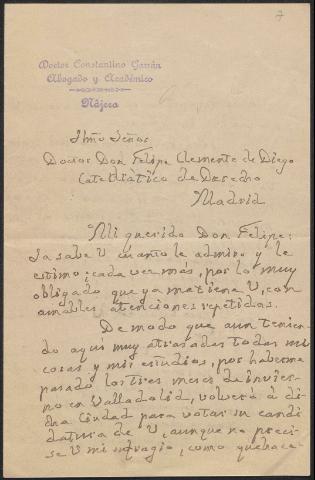 7
Doctor Constantino Garrán
Abogado y Académico
Nájera
Ilmo Señor
Doctor Don Felipe Clemente de Diego
Catedrático de Derecho
Madrid
Mi querido Don Felipe:
Ya sabe V. cuanto le admiro y le
estimo; cada vez más, por lo muy
obligado que ya me tiene V, con
amables atenciones repetidas.
De modo que aun tenien-
do aquí muy atrasadas todas mis
cosas y mis estudios, por haberme
pasado los tres meses de invier-
no en Valladolid, volveré a di-
cha Ciudad para votar su candi-
datura de V, aunque no preci-
se V mi sufragio, como que hace-